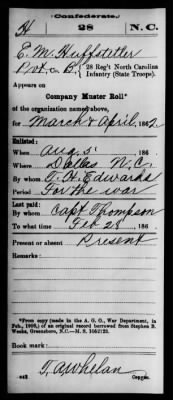 Confederate.
H 28 N.C.
E. M. Huffstetler
Pvt, Co. B, 28 Reg't North Carolina
Infantry (State Troops).
Appears on
Company Muster Roll*
of the organization named above,
for March & April, 1862.
Enlisted:
When Aug 5, 186 .
Where Dallas N.C.
By whom T. H. Edwards
Period For the war
Last paid:
By whom Capt Thompson
To what time Feb 28, 186 .
Present or absent Present
Remarks:
*From copy (made in the A. G. O., War Department, in
Feb., 1908,) of an original record borrowed from Stephen B.
Weeks, Greensboro, N.C.—M. S.
Book mark:
T. A. Whelan
(642) Copyist.